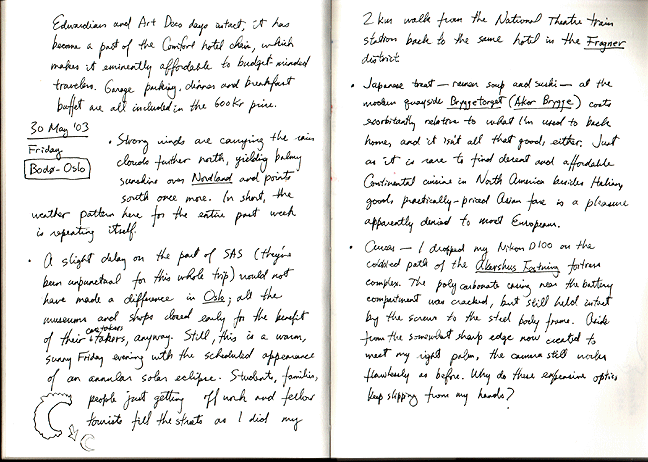 Edwardian and Art Deco days intact, it has
become a part of the Comfort hotel chain, which
makes it eminently affordable to budget-minded
travelers. Garage parking, dinner and breakfast
buffet are all included in the 600 kr price.
30 May '03
Friday
Bodø-Oslo
• Strong winds are carrying the rain
clouds further north, yielding balmy
sunshine over Nordland and points
south once more. In short, the
weather pattern here for the entire past week
is repeating itself.
• A slight delay on the part of SAS (they've
been unpunctual for this whole trip) would not
have made a difference in Oslo; all the
museums and shops closed early for the benefit
of their takers, anyway. Still, this is a warm,
sunny Friday evening with the scheduled appearance
of an annular solar eclipse. Students, families,
people just getting off work and fellow
tourists fill the streets as I did my
2 km walk from the National Theatre train
station back to the same hotel in the Frogner
district
• Japanese treat — ramen soup and sushi — at the
modern quayside Bryggetorget (Aker Brygge) costs
exorbitantly relative to what I'm used to back
home, and it isn't all that good, either. Just
as it is rare to find decent and affordable
Continental cuisine in North America besides Italian,
good, practically-priced Asian fare is a pleasure
apparently denied to most Europeans.
• — I dropped my Nikon D100 on the
cobbled path of the Akershus Festning fortress
complex. The polycarbonate casing near the battery
compartment was cracked, but still held intact
by the screws to the steel body frame. Aside
from the somewhat sharp edge now created to
meet my right palm, the camera still works
flawlessly as before. Why do these expensive optics
keep slipping from my hands?